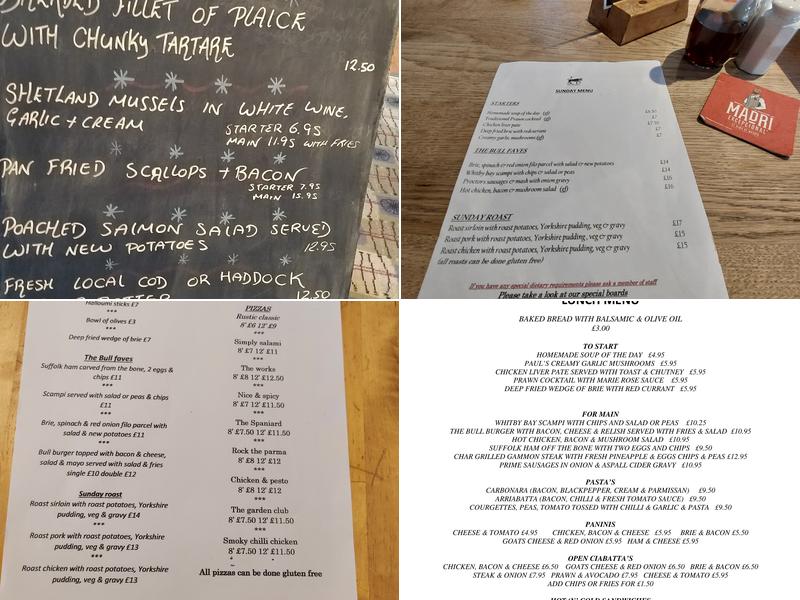 BREADED FILLET OF PLAICE
WITH CHUNKY TARTARE
12.50
SHETLAND MUSSELS IN WHITE WINE,
GARLIC + CREAM
STARTER 6.95
MAIN 11.95 WITH FRIES
PAN FRIED SCALLOPS + BACON
STARTER 7.95
MAIN 15.95
POACHED SALMON SALAD SERVED
WITH NEW POTATOES 12.95
FRESH LOCAL COD OR HADDOCK
12.50
SUNDAY MENU
STARTERS
Homemade soup of the day (gf) £6.50
Traditional Prawn cocktail (gf) £7
Chicken liver pate £7.50
Deep fried brie with redcurrant £7
Creamy garlic mushrooms (gf) £7
THE BULL FAVES
Brie, spinach & red onion filo parcel with salad & new potatoes £14
Whitby bay scampi with chips & salad or peas £14
Proctors sausages & mash with onion gravy £15
Hot chicken, bacon & mushroom salad (gf) £16
SUNDAY ROAST
Roast sirloin with roast potatoes, Yorkshire pudding, veg & gravy £17
Roast pork with roast potatoes, Yorkshire pudding , veg & gravy £15
Roast chicken with roast potatoes, Yorkshire pudding, veg & gravy £15
(all roasts can be done gluten free)
If you have any special dietary requirements please ask a member of staff
Please take a look at our special boards
MADRÍ
EXCEPCIONAL
Halloumi sticks £7
***
Bowl of olives £3
***
Deep fried wedge of brie £7
The Bull faves
Suffolk ham carved from the bone, 2 eggs &
chips £11
***
Scampi served with salad or peas & chips
£11
***
Brie, spinach & red onion filo parcel with
salad & new potatoes £11
***
Bull burger topped with bacon & cheese,
salad & mayo served with salad & fries
single £10 double £12
Sunday roast
Roast sirloin with roast potatoes, Yorkshire
pudding, veg & gravy £14
***
Roast pork with roast potatoes, Yorkshire
pudding, veg & gravy £13
***
Roast chicken with roast potatoes, Yorkshire
pudding, veg & gravy £13
PIZZAS
Rustic classic
8' £6 12' £9
***
Simply salami
8' £7 12' £11
***
The works
8' £8 12' £12.50
***
Nice & spicy
8' £7 12' £11.50
***
The Spaniard
8' £7.50 12' £11.50
***
Rock the parma
8' £8 12' £12
***
Chicken & pesto
8' £8 12' £12
***
The garden club
8' £7.50 12' £11.50
***
Smoky chilli chicken
8' £7.50 12' £11.50
All pizzas can be done gluten free
LUNCH MENU
BAKED BREAD WITH BALSAMIC & OLIVE OIL
£3.00
TO START
HOMEMADE SOUP OF THE DAY £4.95
PAUL'S CREAMY GARLIC MUSHROOMS £5.95
CHICKEN LIVER PATE SERVED WITH TOAST & CHUTNEY £5.95
PRAWN COCKTAIL WITH MARIE ROSE SAUCE £5.95
DEEP FRIED WEDGE OF BRIE WITH RED CURRANT £5.95
FOR MAIN
WHITBY BAY SCAMPI WITH CHIPS AND SALAD OR PEAS £10.25
THE BULL BURGER WITH BACON, CHEESE & RELISH SERVED WITH FRIES & SALAD £10.95
HOT CHICKEN, BACON & MUSHROOM SALAD £10.95
SUFFOLK HAM OFF THE BONE WITH TWO EGGS AND CHIPS £9.50
CHAR GRILLED GAMMON STEAK WITH FRESH PINEAPPLE & EGGS CHIPS & PEAS £12.95
PRIME SAUSAGES IN ONION & ASPALL CIDER GRAVY £10.95
PASTA'S
CARBONARA (BACON, BLACKPEPPER, CREAM & PARMISSAN) £9.50
ARRIABATTA (BACON, CHILLI & FRESH TOMATO SAUCE) £9.50
COURGETTES, PEAS, TOMATO TOSSED WITH CHILLI & GARLIC & PASTA £9.50
PANINIS
CHEESE & TOMATO £4.95 CHICKEN, BACON & CHEESE £5.95 BRIE & BACON £5.50
GOATS CHEESE & RED ONION £5.95 HAM & CHEESE £5.95
OPEN CIABATTA'S
CHICKEN, BACON & CHEESE £6.50 GOATS CHEESE & RED ONION £6.50 BRIE & BACON £6.50
STEAK & ONION £7.95 PRAWN & AVOCADO £7.95 CHEESE & TOMATO £5.95
ADD CHIPS OR FRIES FOR £1.50